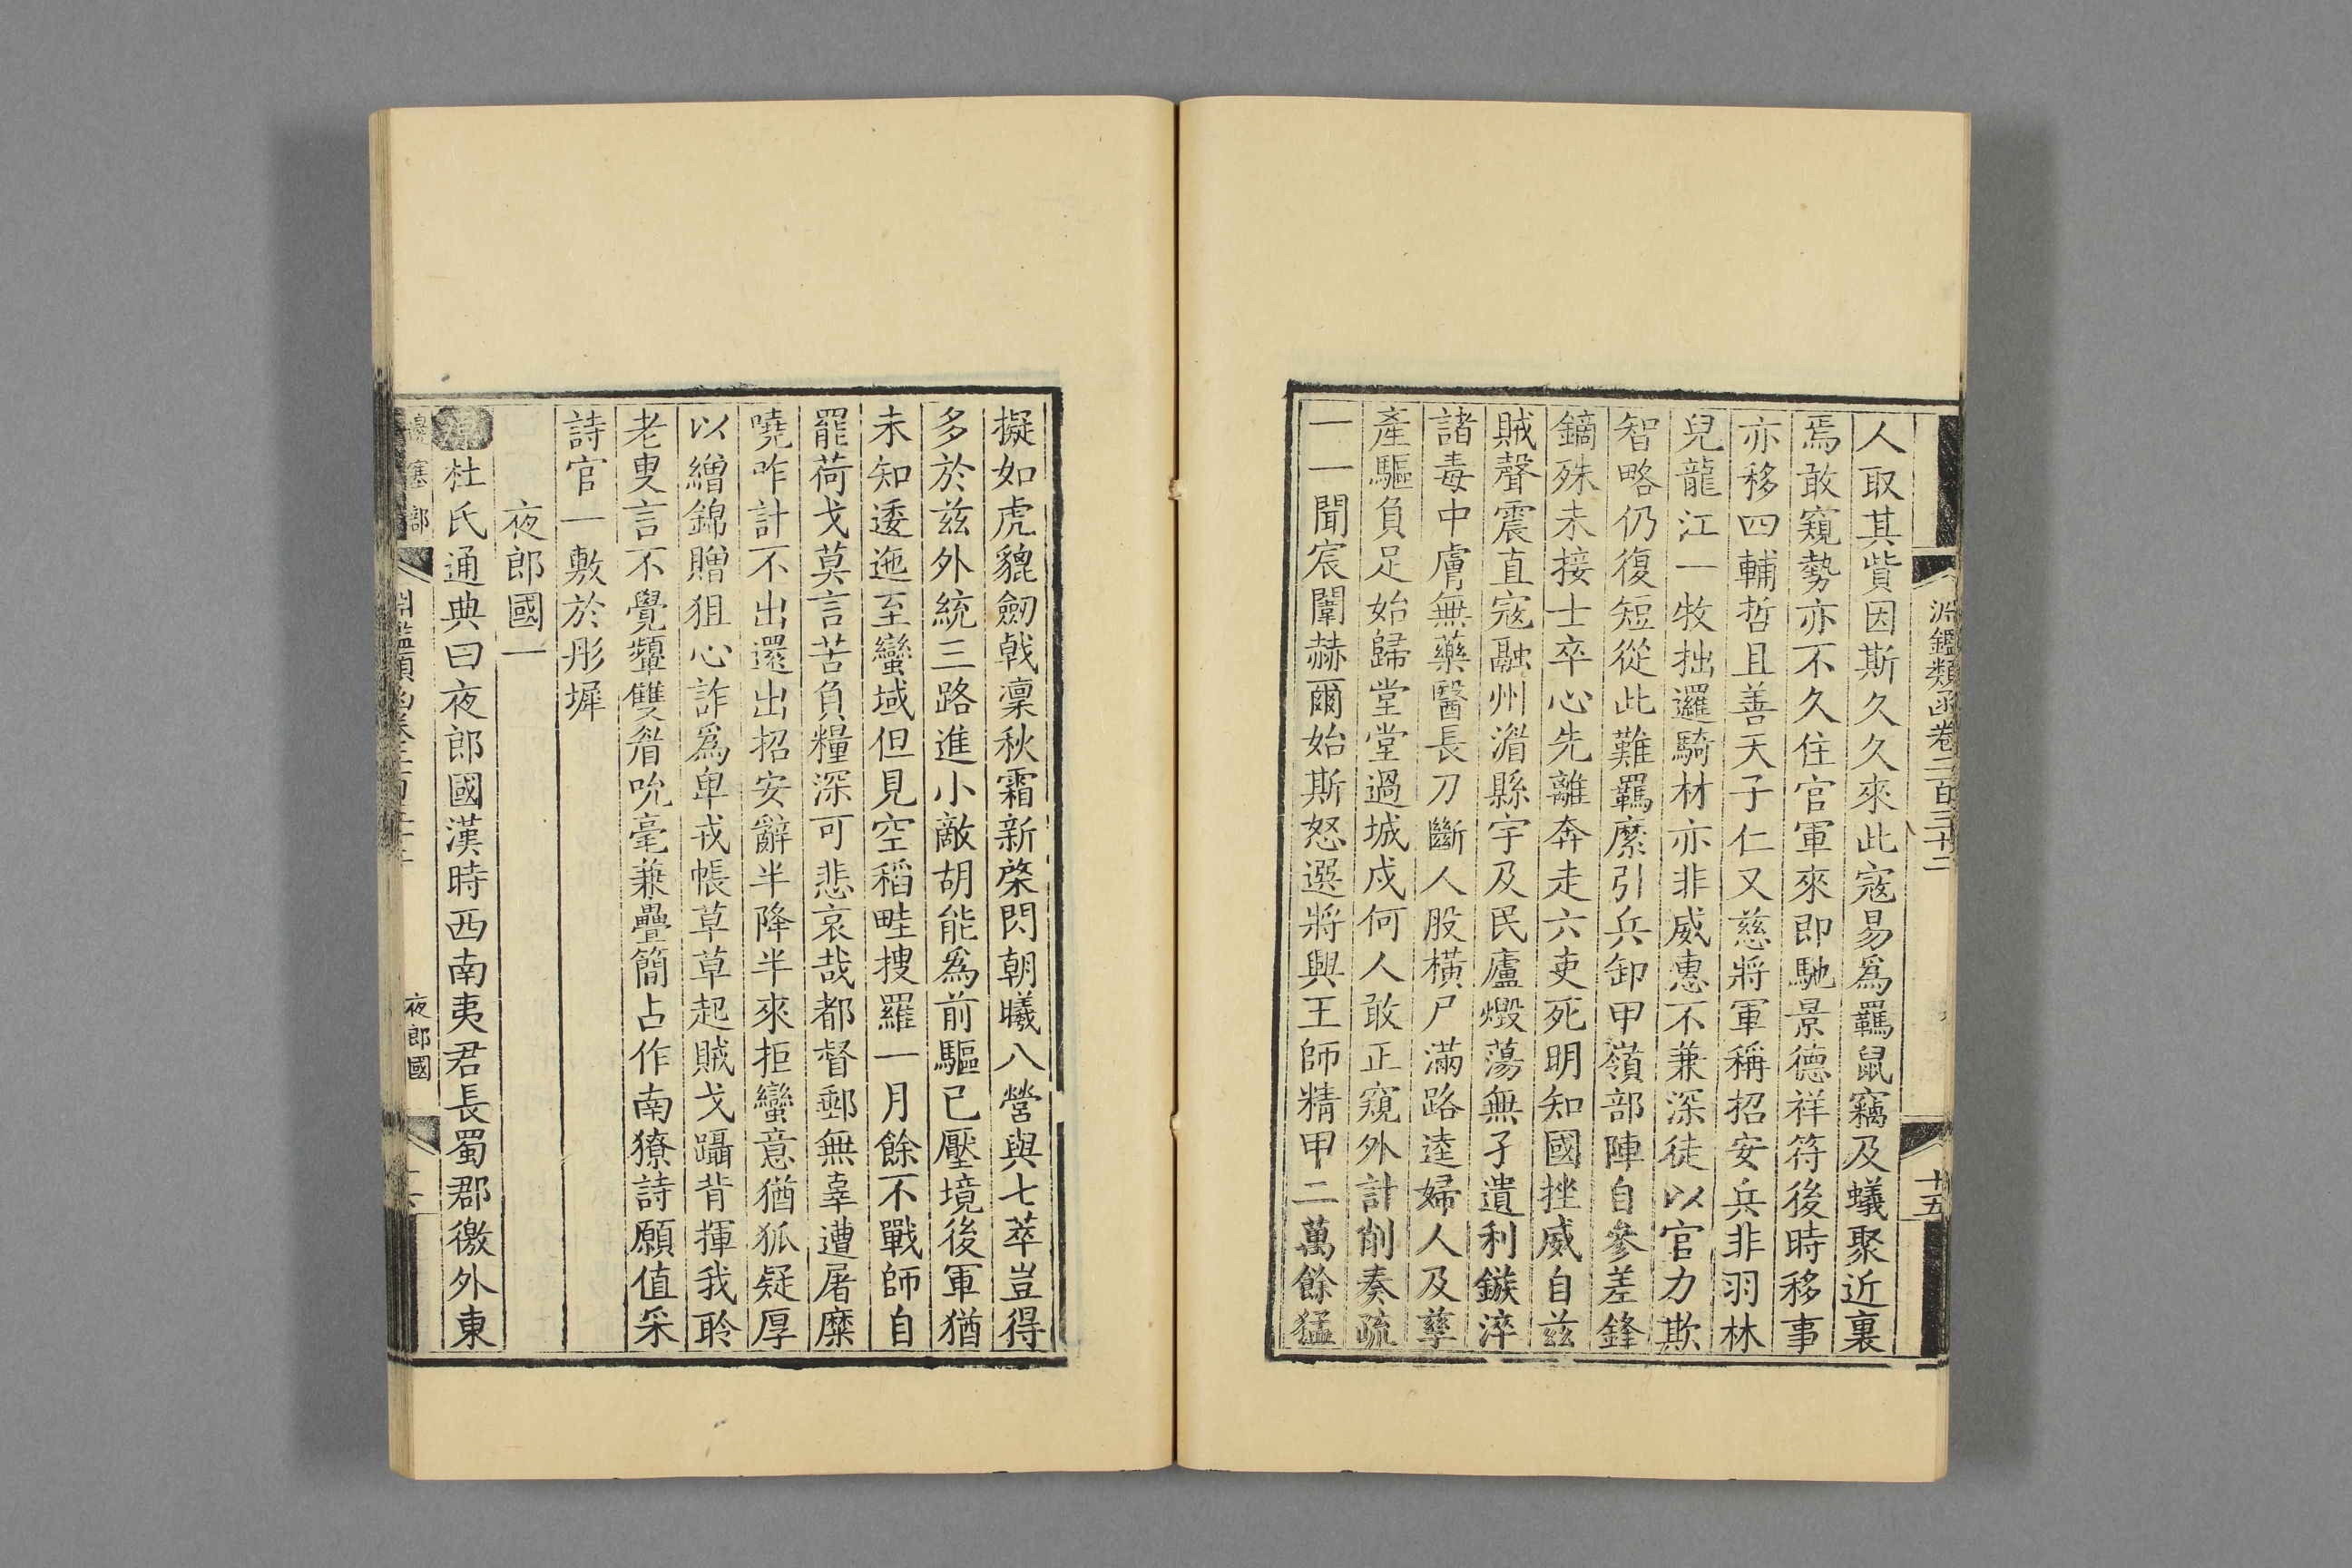 淵鑑類函卷二百三十二
十五
人取其貲因斯久久來此寇易爲羈鼠竊及蟻聚近裏
焉敢窺勢亦不久住官軍來即馳景德祥符後時移事
亦移四輔哲且善天子仁又慈將軍稱招安兵非羽林
兒龍江一牧拙邏騎材亦非威惠不兼深徒以官力欺
智略仍復短從此難羈縻引兵卸甲嶺部陣自參差鋒
鏑殊未接士卒心先離奔走六吏死明知國挫威自兹
賊聲震直寇融州湣縣宇及民廬燬蕩無孑遺利鏃淬
諸毒中膚無藥醫長刀斷人股橫尸滿路逵婦人及孳
產驅負足始歸堂堂過城戍何人敢正窺外計削奏疏
一一聞宸闈赫爾始斯怒選將興王師精甲二萬餘猛
擬如虎貔劒戟凜秋霜新棨閃朝曦八營與七萃豈得
多於兹外統三路進小敵胡能爲前驅已壓境後軍猶
未知逶迤至蠻域但見空稻畦搜羅一月餘不戰師自
罷荷戈莫言苦負糧深可悲哀哉都督郵無辜遭屠糜
嘵咋計不出還出招安辭半降半來拒蠻意猶狐疑厚
以繒錦贈狙心詐爲卑戎帳草草起賊戈躡背揮我聆
老叟言不覺顰雙眉吮毫兼疊簡占作南獠詩願值采
詩官一敷於彤墀
夜郎國一
杜氏通典曰夜郎國漢時西南夷君長蜀郡徼外東
邊塞部
夜郎國